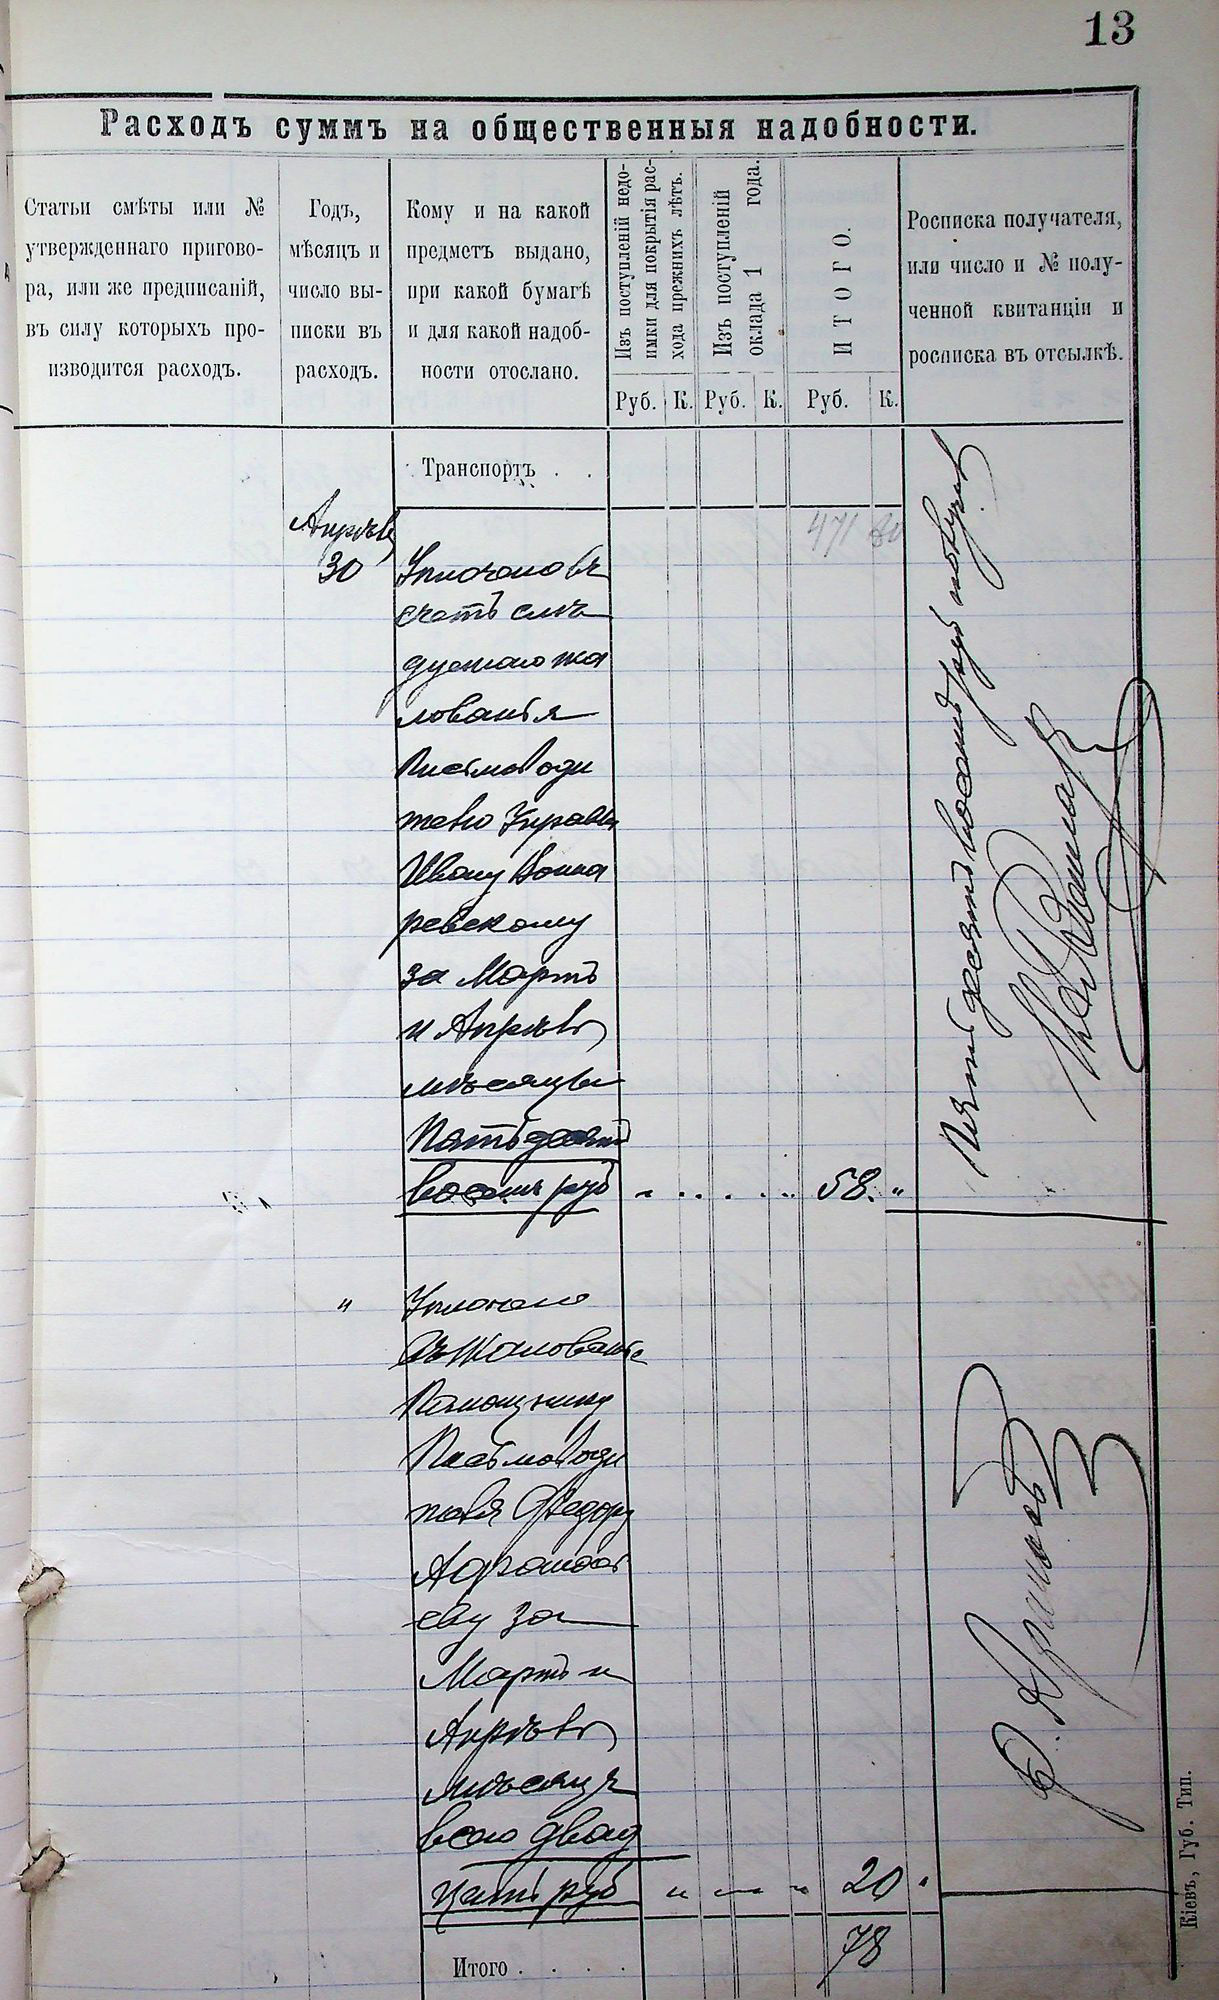 13
Расходъ суммъ на общественныя надобности.
Статьи смѣты или №
утвержденнаго пригово-
ра, или же предписаній,
въ силу которыхъ про-
изводится расходъ.
Годъ,
мѣсяцъ и
число вы-
писки въ
расходъ.
Кому и на какой
предметъ выдано,
при какой бумагѣ
и для какой надоб-
ности отослано.
Изъ поступленій недо-
имки для покрытія рас-
хода прежнихъ лѣтъ.
Изъ поступленій
оклада 1 года.
ИТОГО.
Росписка получателя,
или число и № полу-
ченной квитанціи и
росписка въ отсылкѣ.
Руб. К. Руб. К. Руб. К.
Транспортъ . .
471 80
Апрѣль
30 Уплочено въ
счетъ слѣ
дуемаго жа
лованья
Письмоводи
телю Управы
Ивану
ревскому
за Мартъ
и Апрѣль
мѣсяцы
Пятьдесятъ
восемь руб 58. "
Пятьдесятъ восемь руб получилъ
" Уплочено
въ жалованье
Помощнику
Письмоводи
теля Федору
еву за
Мартъ и
Апрѣль
мѣсяцы
всего двад
цать руб " " " 20 "
Итого . . . . 78
Кіевъ, Губ. Тип.